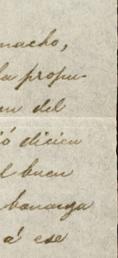 nacho,
la propu-
an del
ió dicien
l buen
bonanza
á ese